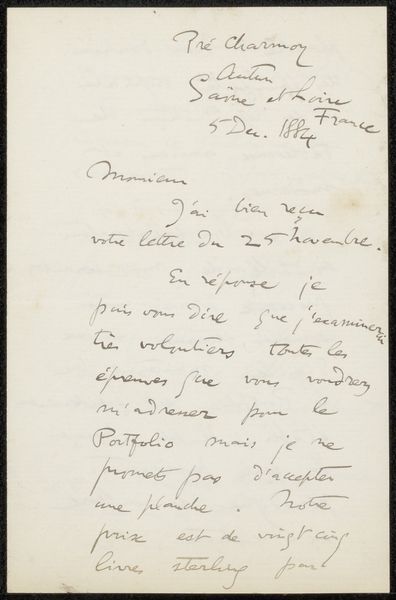 Pré Charmoy
Autun
Saône et Loire
France
5 Dec. 1884
Monsieur
J'ai bien reçu
votre lettre du 25 Novembre.
En réponse je
puis vous dire que j'examinerai
très volontiers toutes les
épreuves que vous voudrez
m'adresser pour le
Portfolio mais je ne
promets pas d'accepter
une planche. Notre
prix est de vingt cinq
livres sterling par